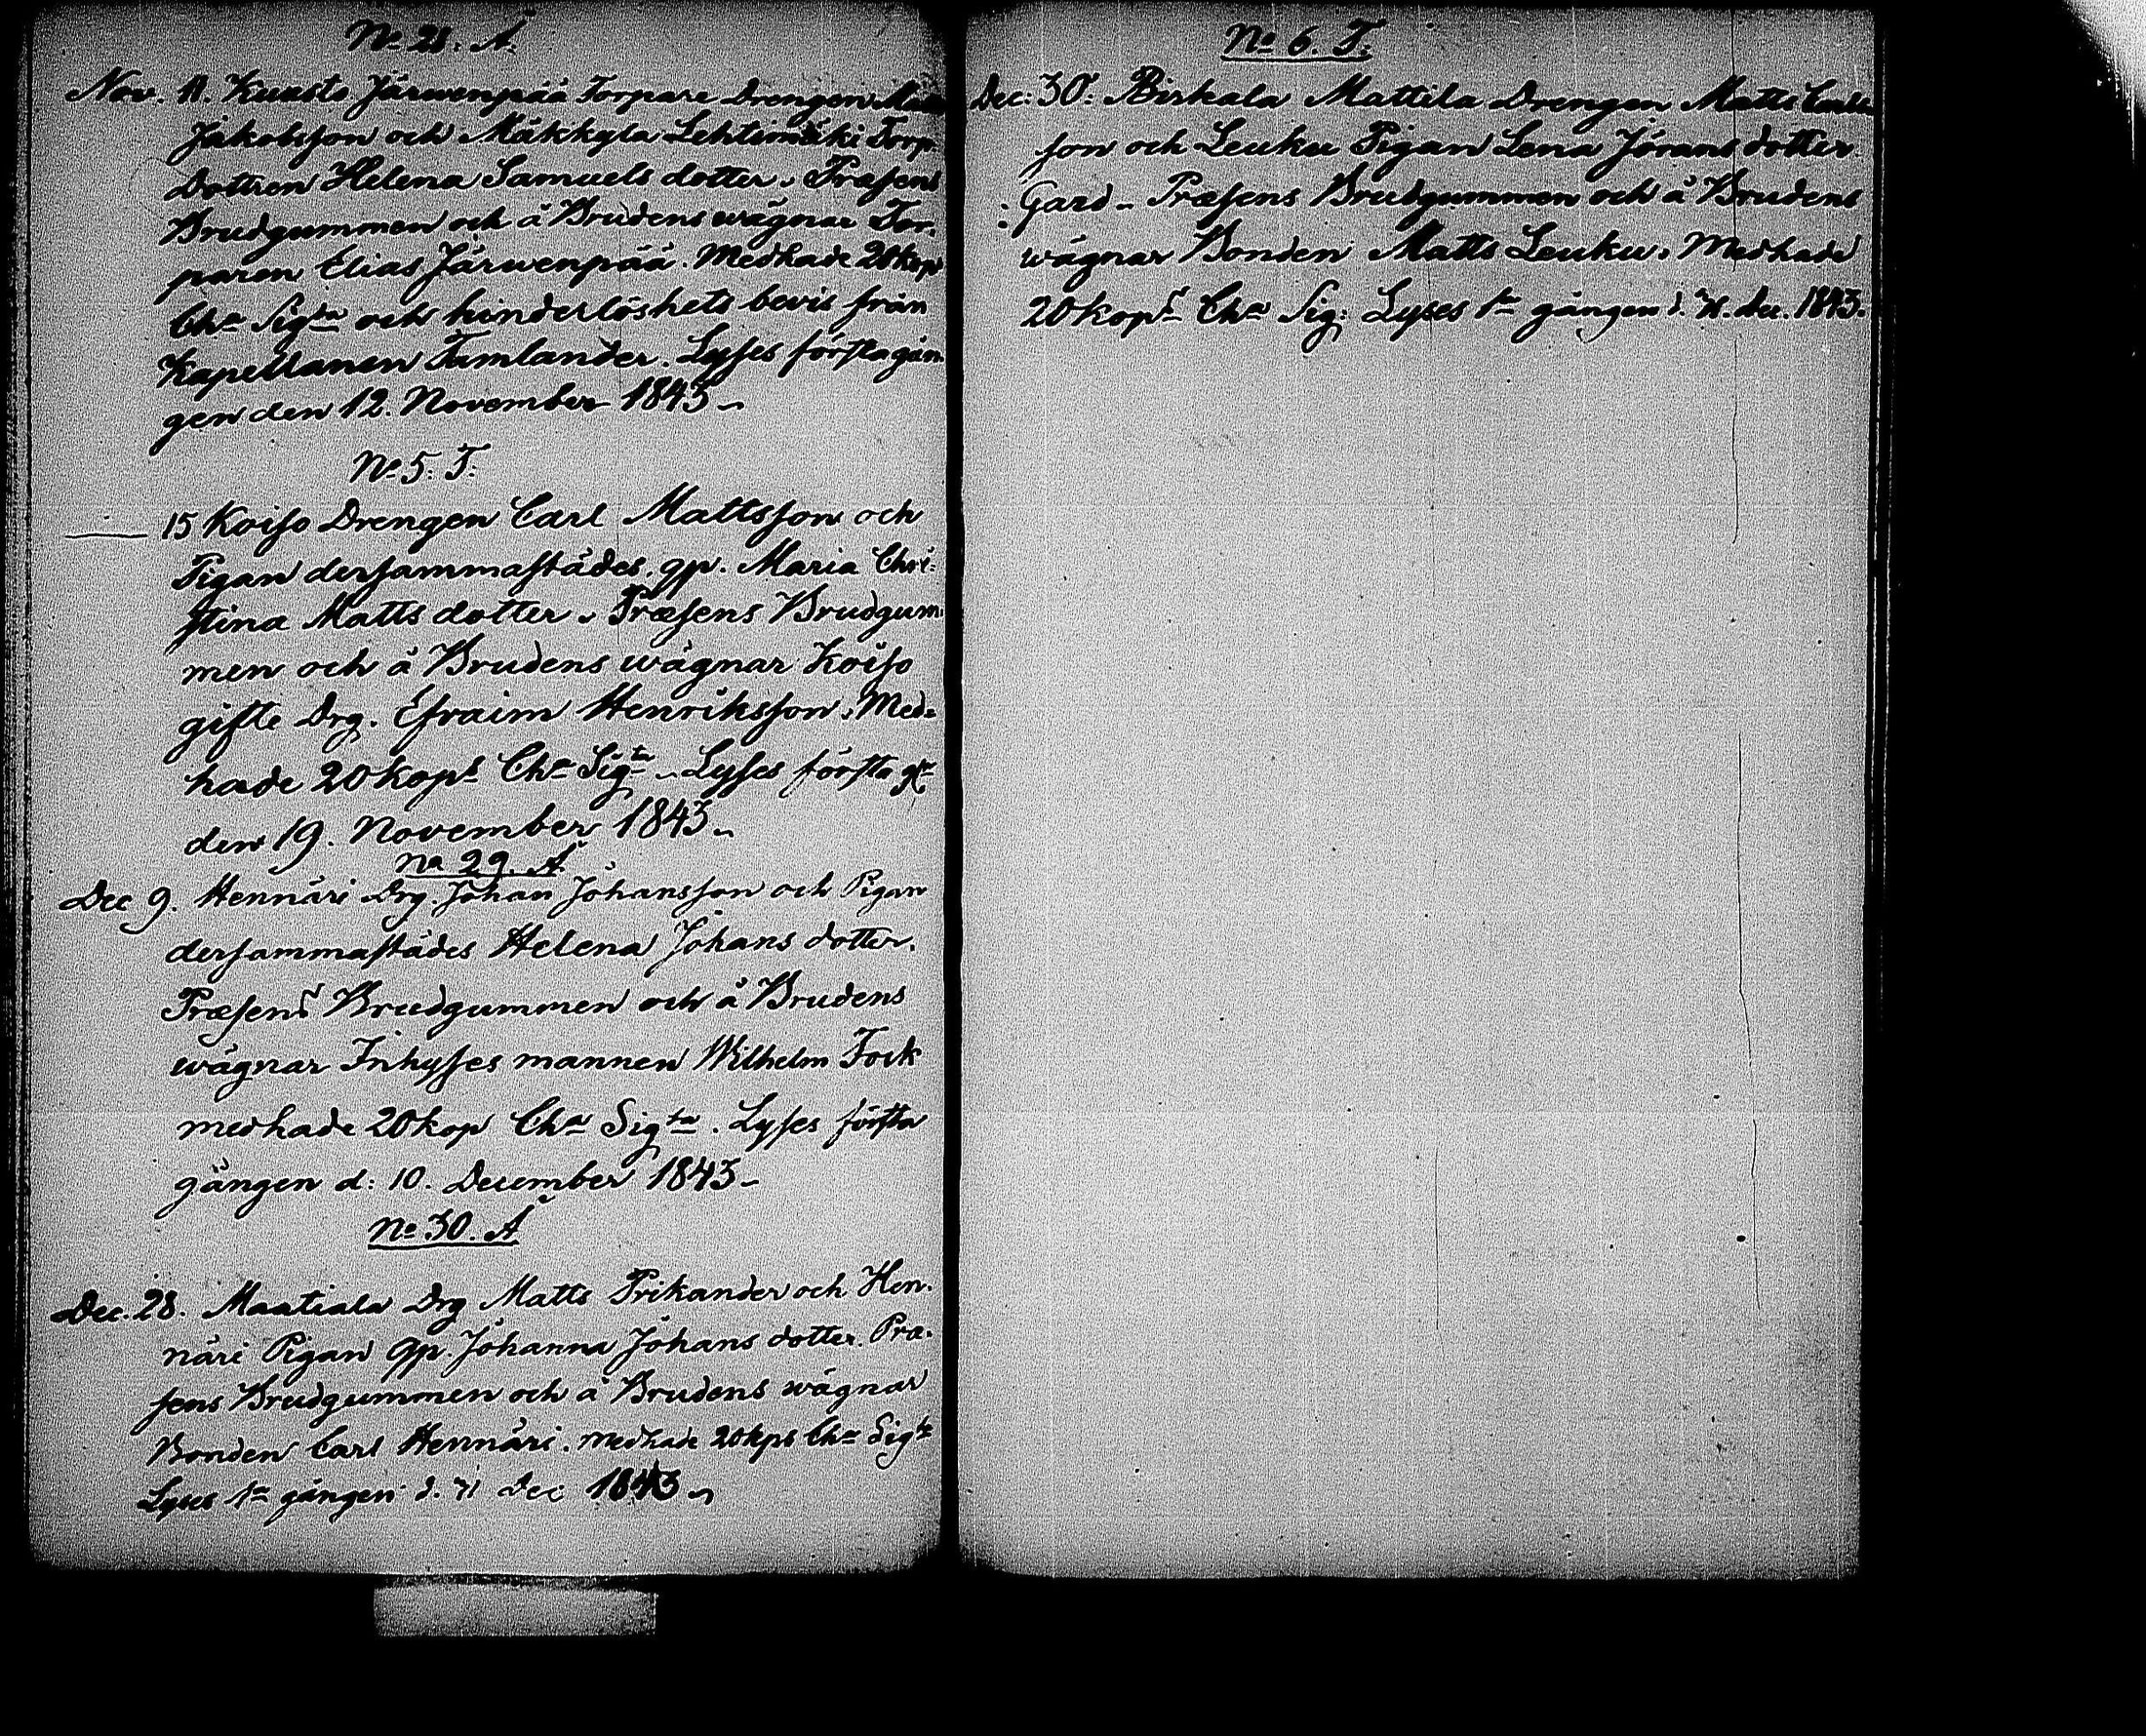 No 28. Å.
Nov. 11. Kuusto Järwenpää Torpare Drengen Matts
Jakobsson och Mäkkylä Lehtimäki Torp.
Dottren Helena Samuels dotter. Præsens
Brudgummen och å Brudens wägnar Tor.
paren Elias Järwenpää. Medhade 20 kop
Cha Sigta och hinderlöshets bevis från
Kapellanen Tamlander. Lyses första gån.
gen den 12. November 1843
No 5. T.
15 Koiso Drengen Carl Mattsson och
Pigan dersammastädes, gp. Maria Chri:
stina Matts dotter. Præsens Brudgum.
men och å Brudens wägnar Koiso
gifte Drg. Efraim Henriksson. Med:
hade 20 kops Cha Sigta. Lyses första
den 19. November 1843
No 29. Å
Dec 9. Hennäri Drg. Johan Johansson och Pigan
dersammastädes Helena Johans dotter.
Præsens Brudgummen och å Brudens
wägnar Inhyses mannen Wilhelm Fock
medhade 20 kop Cha Sigta. Lyses första
gången d: 10. December 1843
No 30. Å
Dec. 28. Maatiala Drg Matts Prikander och Hen.
näri Pigan gp. Johanna Johans dotter. Præ.
sens Brudgummen och å Brudens wägnar
Bonden Carl Hennäri. medhade 20 kps Cha Sigta
Lyses 1a gången d. 31 Dec 1843
No 6. T.
Dec: 30. Birkala Mattila Drengen Matts Carls
son och Leuku Pigan Lena Jörans dotter
Gard. Præsens Brudgummen och å Brudens
wägnar Bonden Matts Leuku. Medhade
20 kops Cha Sig: Lyses 1a gången d. 31. dec. 1843.